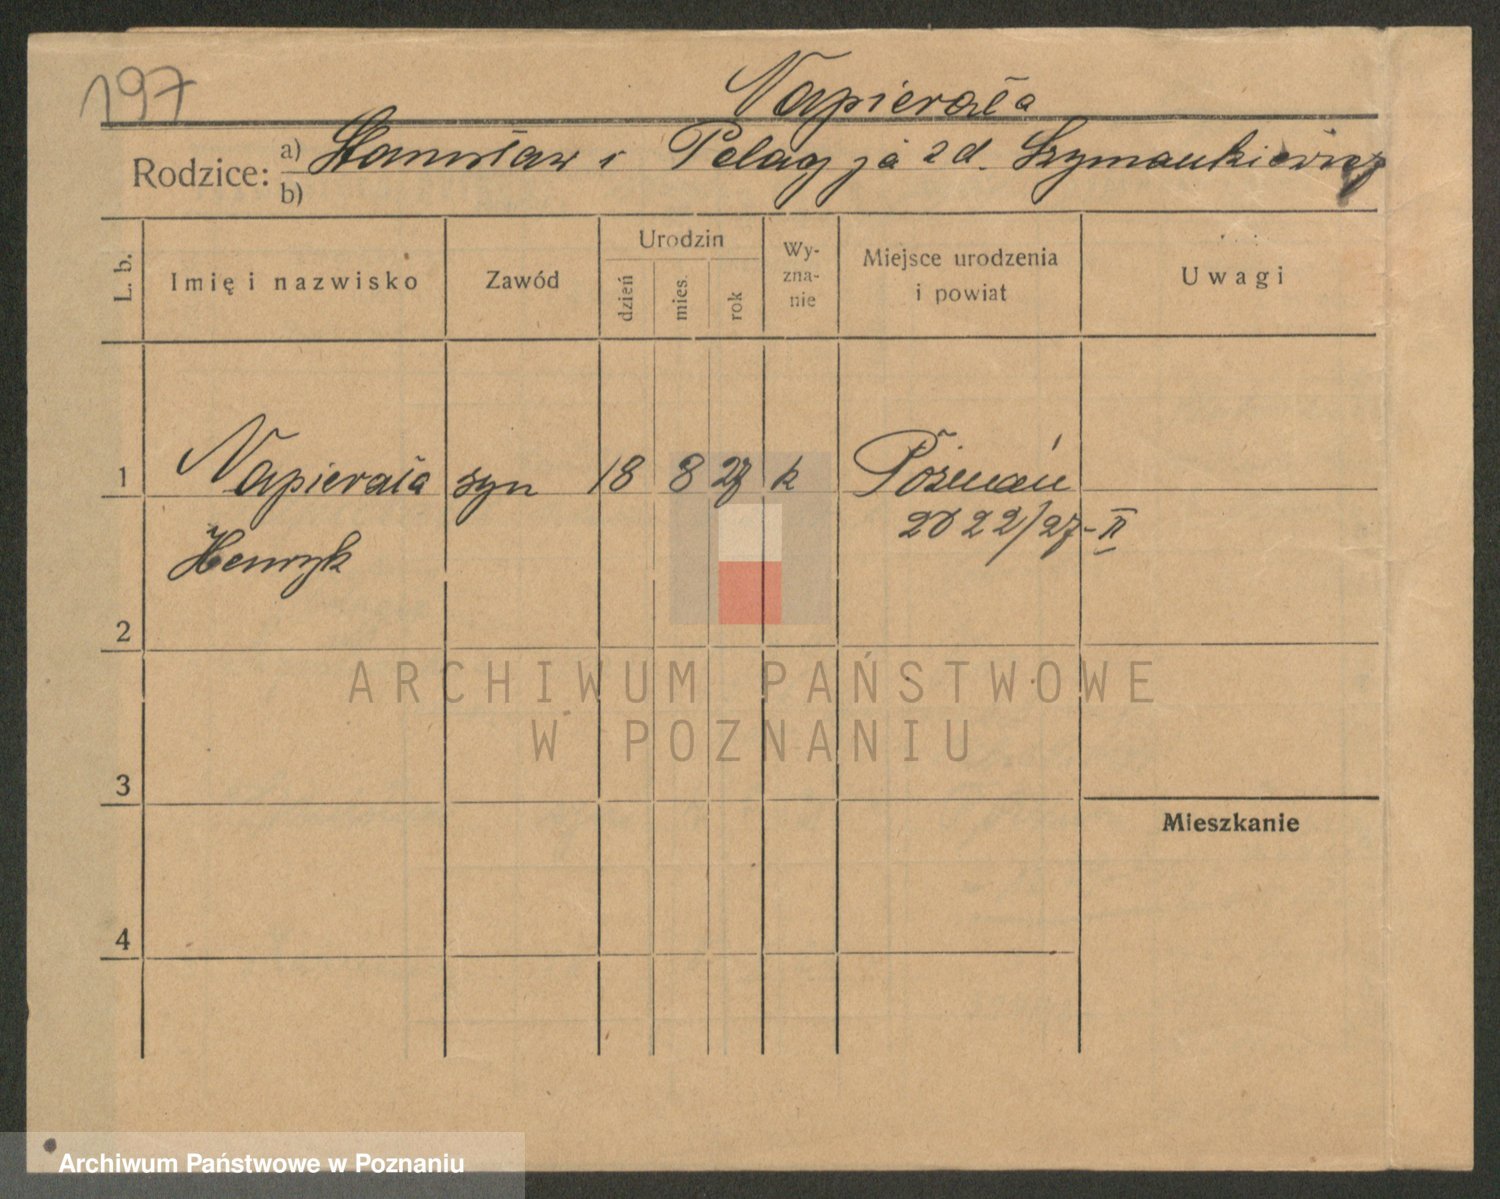 197
Napierała
Rodzice: a) Stanisław i Pelagja zd. Szymankiewicz
b)
L. b. Imię i nazwisko Zawód Urodzin dzień mies. rok Wyznanie Miejsce urodzenia i powiat Uwagi
1 Napierała syn 18 8 27 k Poznań
Henryk 2022/27-II
2
3
Mieszkanie
4
ARCHIWUM PAŃSTWOWE
W POZNANIU
Archiwum Państwowe w Poznaniu